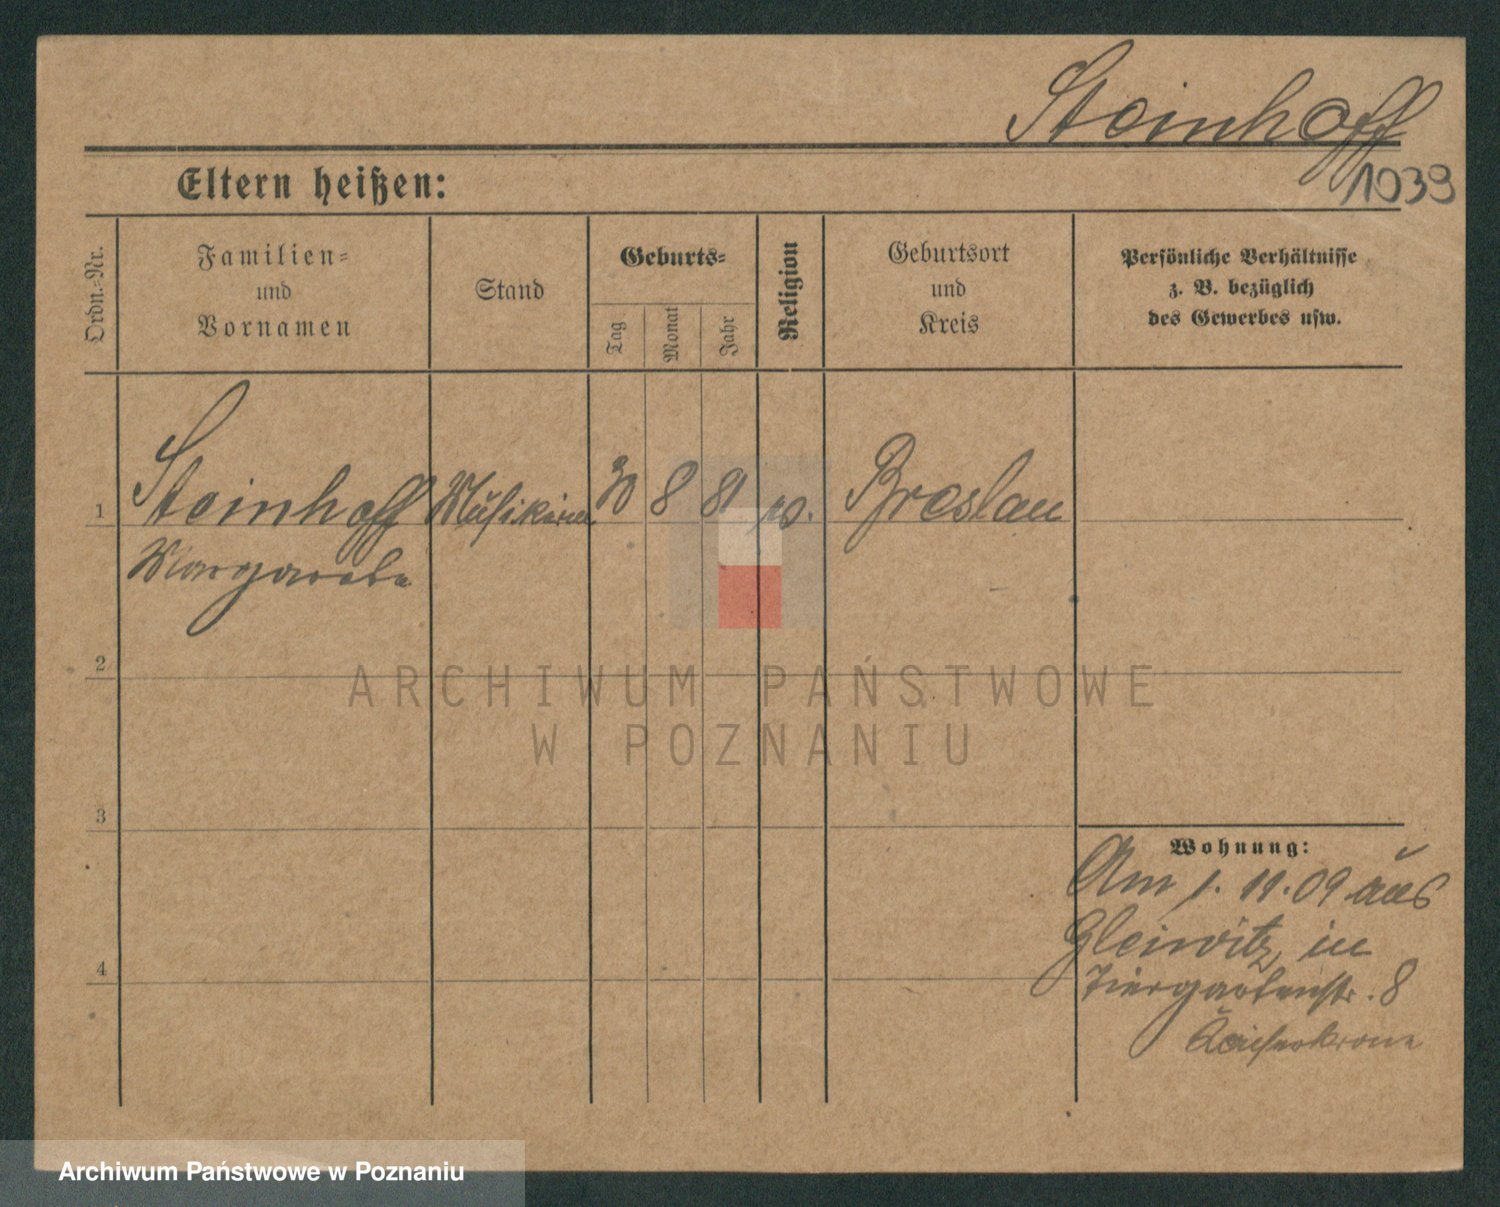 Steinhoff
1039
Eltern heißen:
Ordn.=Nr.
Familien=
und
Vornamen
Stand
Geburts=
Tag
Monat
Jahr
Religion
Geburtsort
und
Kreis
Persönliche Verhältnisse
z. B. bezüglich
des Gewerbes usw.
1
Steinhoff
Margarete
30
8
81
Breslau
2
3
4
Wohnung:
Am 1. 11. 09 aus
Gleiwitz, in
Tiergartenstr. 8
Kaiserkrone
ARCHIWUM PAŃSTWOWE
W POZNANIU
Archiwum Państwowe w Poznaniu